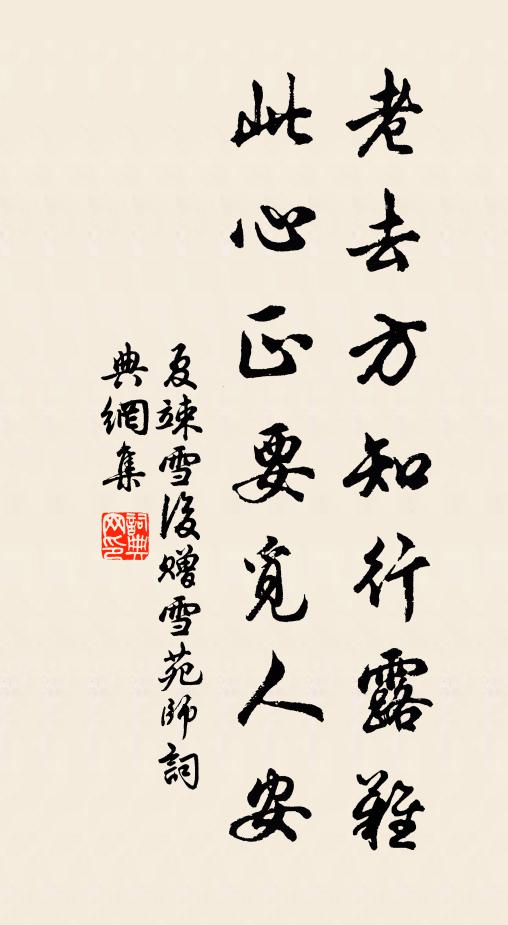 老去方知行露難
此心正要覓人安
夏竦雪後贈雪苑師詞
典網集
詞典網印